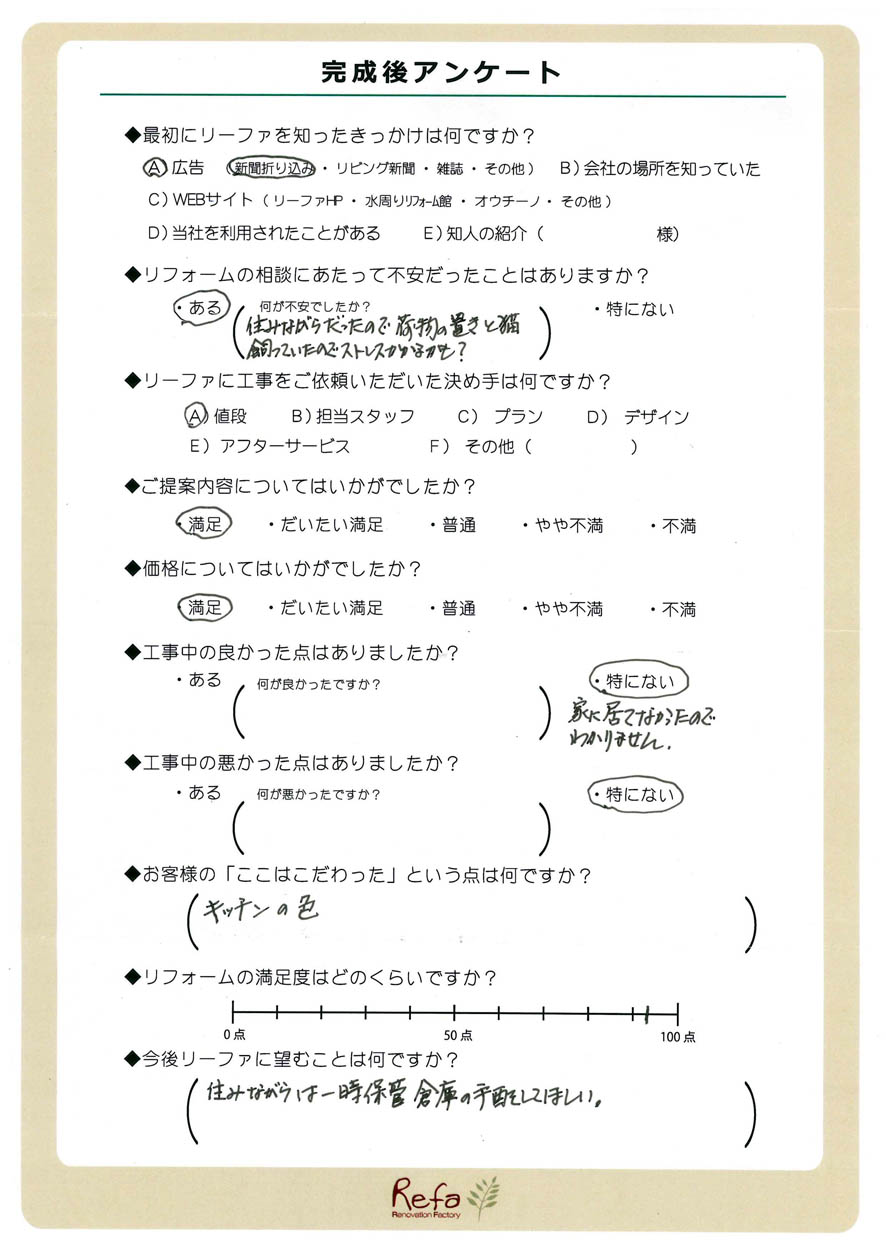 完成後アンケート
◆最初にリーファを知ったきっかけは何ですか？
A) 広告 （新聞折り込み・リビング新聞・雑誌・その他） B)会社の場所を知っていた
C)WEBサイト（リーファHP・水周りリフォーム館・オウチーノ・その他）
D)当社を利用されたことがある E)知人の紹介（ 様）
◆リフォームの相談にあたって不安だったことはありますか？
・ある 何が不安でしたか？ ・特にない
住みながらだったので荷物の置きと猫
飼っていたのでストレスがかるかも？
◆リーファに工事をご依頼いただいた決め手は何ですか？
A)値段 B)担当スタッフ C) プラン D) デザイン
E) アフターサービス F) その他（ ）
◆ご提案内容についてはいかがでしたか？
・満足 ・だいたい満足 ・普通 ・やや不満 ・不満
◆価格についてはいかがでしたか？
・満足 ・だいたい満足 ・普通 ・やや不満 ・不満
◆工事中の良かった点はありましたか？
・ある 何が良かったですか？ ・特にない
家に居てなかったので
わかりません.
◆工事中の悪かった点はありましたか？
・ある 何が悪かったですか？ ・特にない
◆お客様の「ここはこだわった」という点は何ですか？
キッチンの色
◆リフォームの満足度はどのくらいですか？
0点 50点 100点
◆今後リーファに望むことは何ですか？
住みながらは一時保管倉庫の手配をしてほしい。
Refa
Renovation Factory